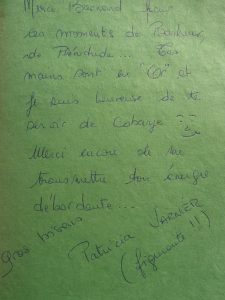 Merci Bertrand pour
ces moments de Bonheur
de Plénitude... Tes
mains sont en "Or" et
je suis heureuse de te
servir de Cobaye
Merci encore de me
transmettre ton énergie
débordante...
Gros bisous
Patricia VARNIER
(figurante !!)